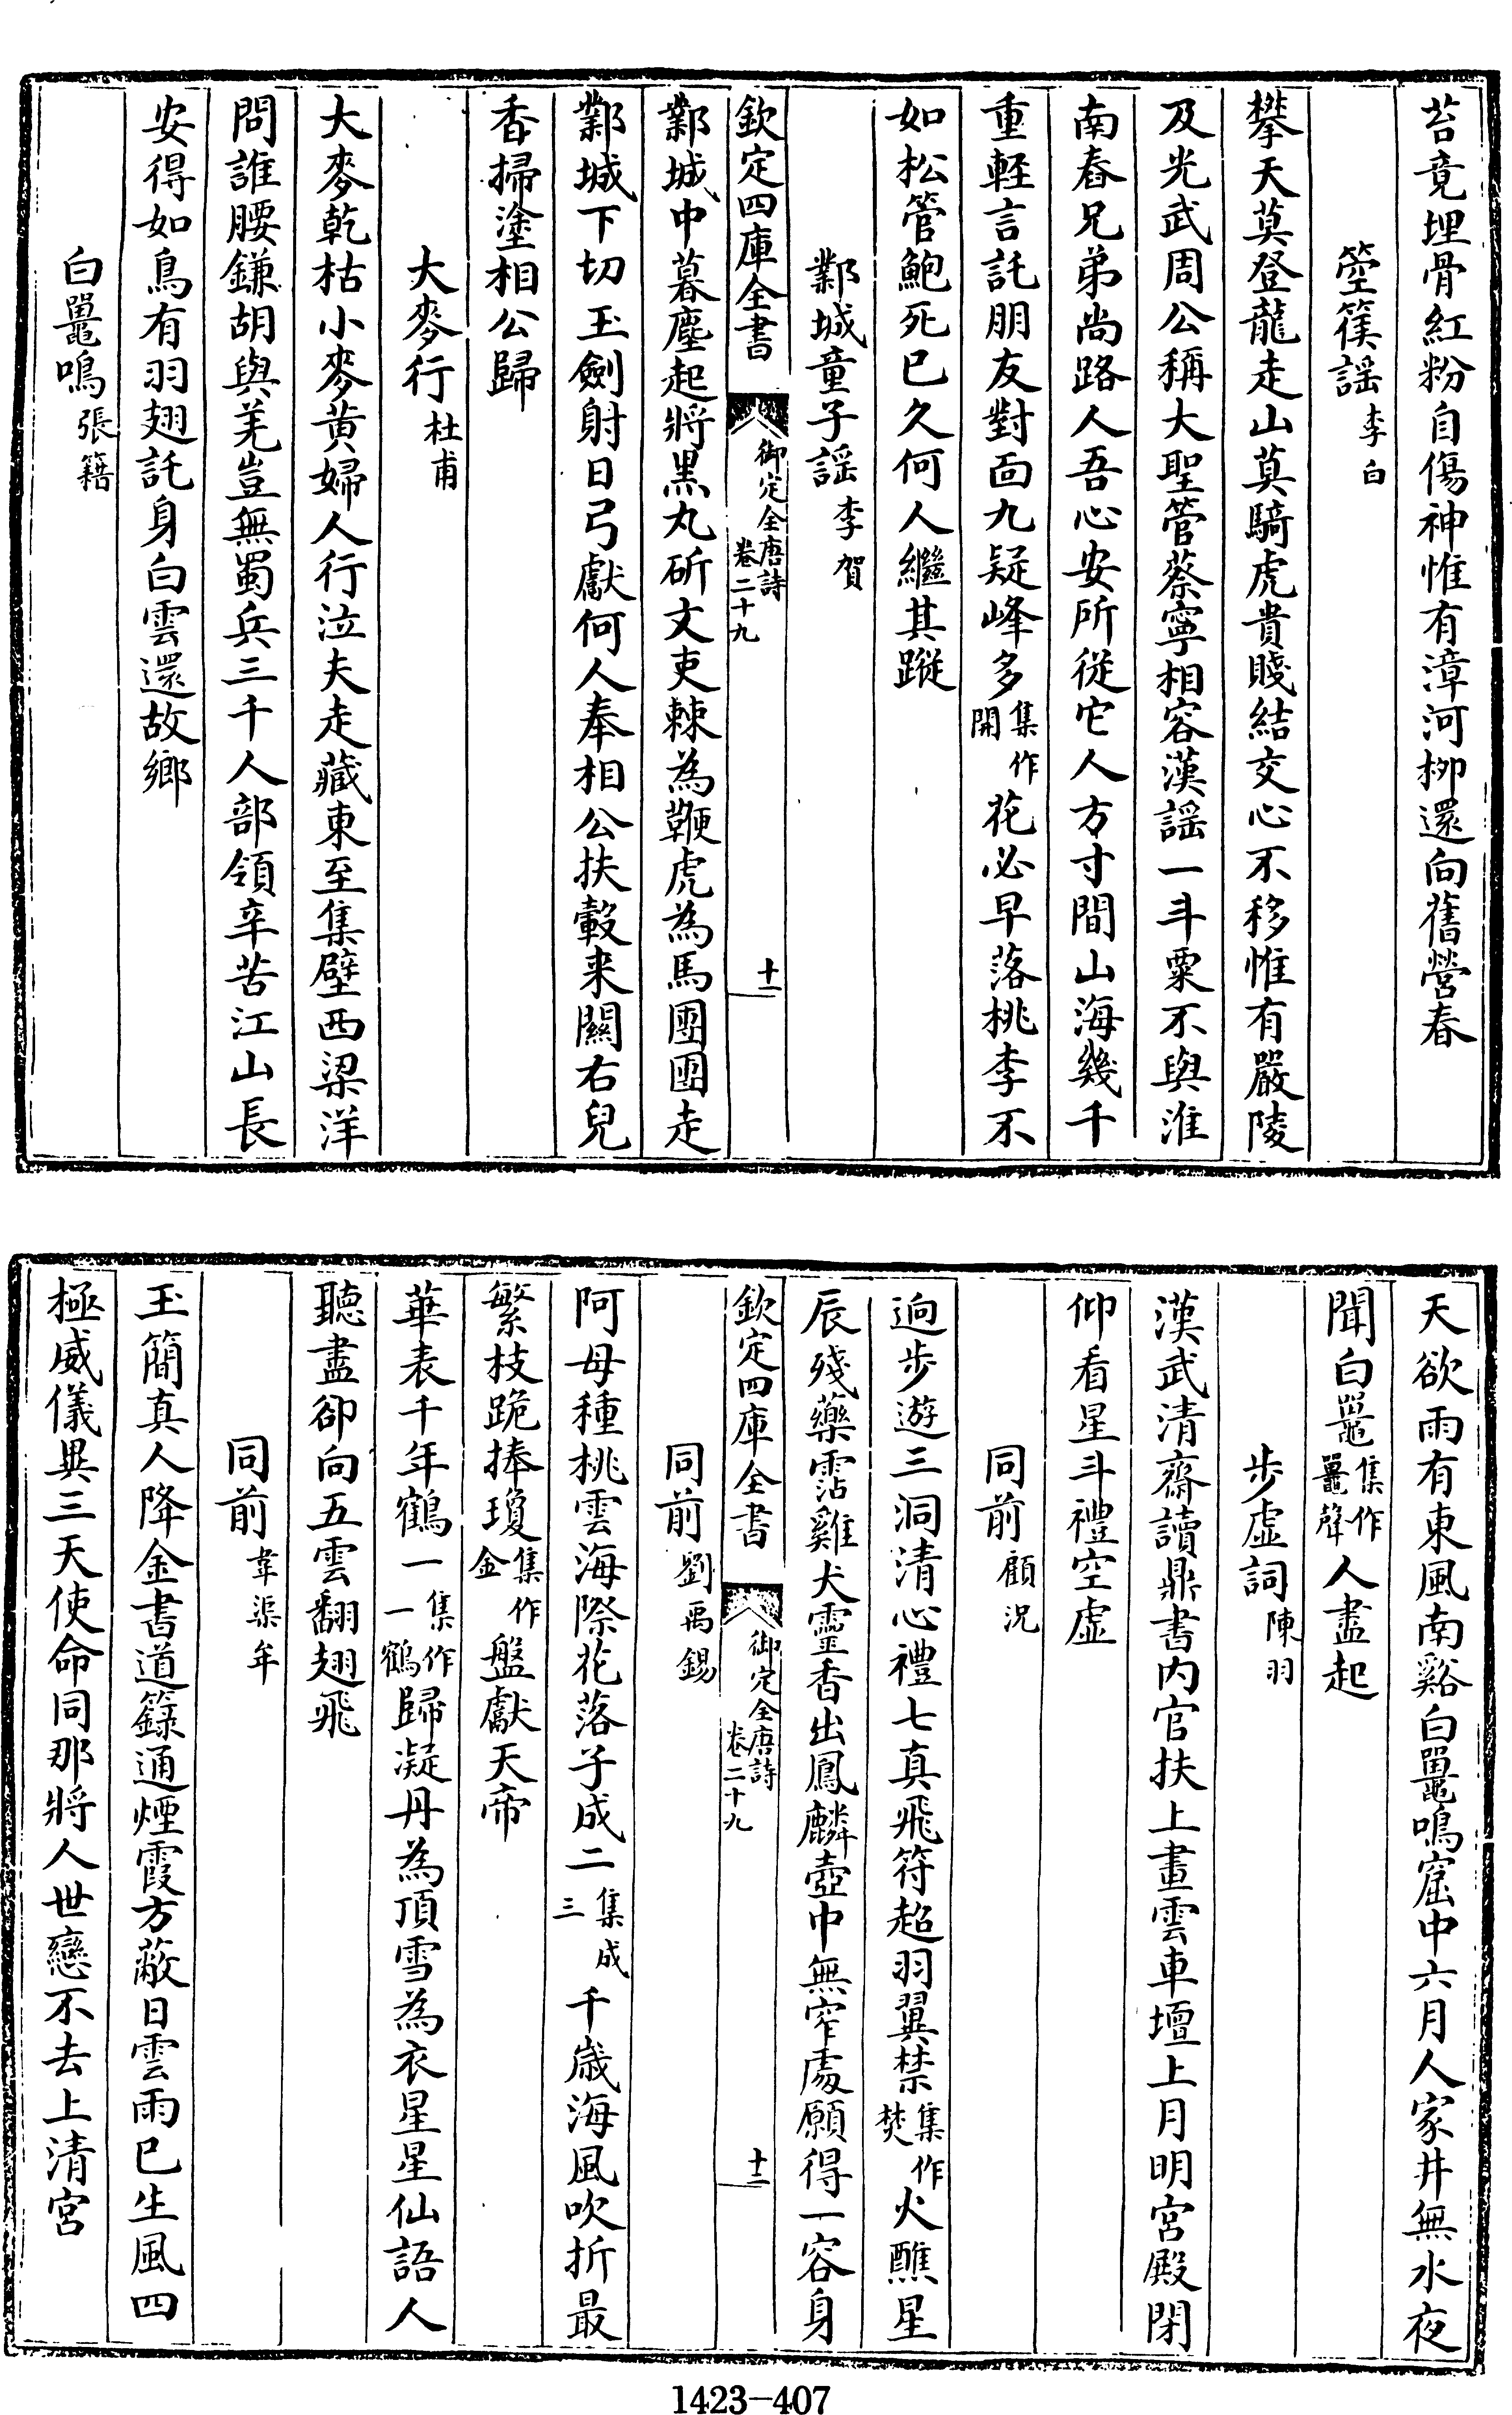 苔竟埋骨紅粉自傷神惟有漳河柳還向舊營春
箜篌謡李白
攀天莫登龍走山莫騎虎貴賤結交心不移惟有嚴陵
及光武周公稱大聖管蔡寧相容漢謡一斗粟不與淮
南舂兄弟尚路人吾心安所從它人方寸間山海幾千
重輕言託朋友對面九疑峰多集作開花必早落桃李不
如松管鮑死已久何人繼其蹤
鄴城童子謡李賀
欽定四庫全書 御定全唐詩卷二十九 十一
鄴城中暮塵起將黑丸斫文吏棘為鞭虎為馬團團走
鄴城下切玉劍射日弓獻何人奉相公扶轂来關右兒
香掃塗相公歸
大麥行杜甫
大麥乾枯小麥黃婦人行泣夫走藏東至集壁西梁洋
問誰腰鎌胡與羌豈無蜀兵三千人部領辛苦江山長
安得如鳥有羽翅託身白雲還故鄉
白鼉鳴張籍
天欲雨有東風南谿白鼉鳴窟中六月人家井無水夜
聞白鼉集作鼉聲人盡起
步虛詞陳羽
漢武清齋讀鼎書内官扶上畫雲車壇上月明宮殿閉
仰看星斗禮空虛
同前顧況
迥步遊三洞清心禮七真飛符超羽翼禁集作焚火醮星
辰殘藥霑雞犬靈香出鳳麟壺中無窄處願得一容身
欽定四庫全書 御定全唐詩卷二十九 十二
同前劉禹錫
阿母種桃雲海際花落子成二集成三千歲海風吹折最
繁枝跪捧瓊集作金盤獻天帝
華表千年鶴一集作一鶴歸凝丹為頂雪為衣星星仙語人
聽盡卻向五雲翻翅飛
同前韋渠牟
玉簡真人降金書道籙通煙霞方蔽日雲雨已生風四
極威儀異三天使命同那將人世戀不去上清宮
1423-407